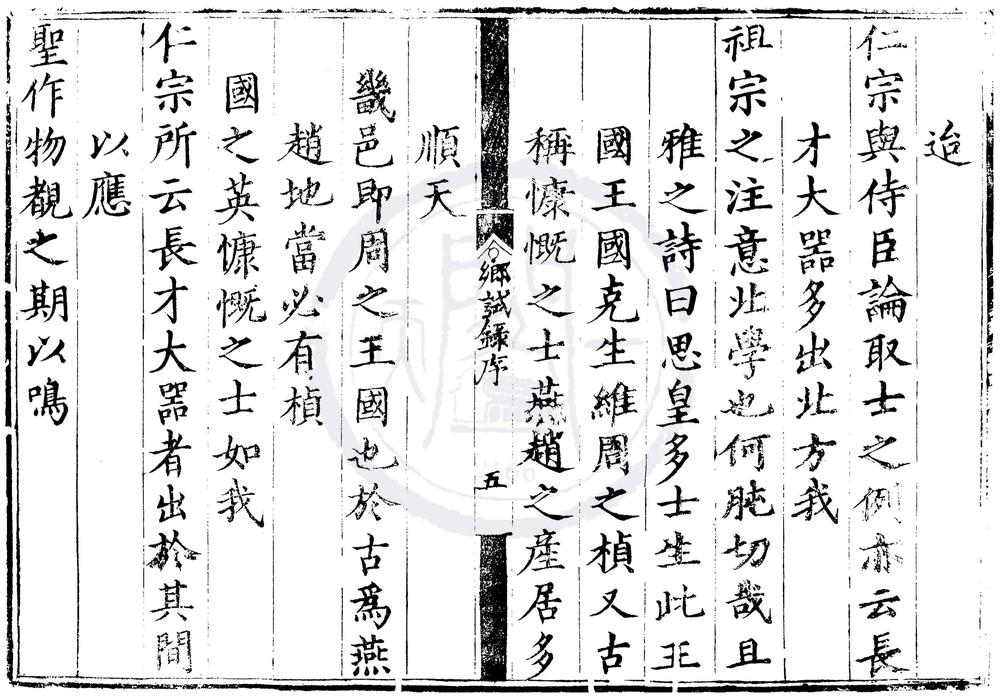 迨
仁宗與侍臣論取士之例亦云長
才大器多出北方我
祖宗之注意北學也何肫切哉且
雅之詩曰思皇多士生此王
國王國克生維周之楨又古
稱慷慨之士燕趙之產居多
鄉試錄序
五
順天
畿邑即周之王國也於古爲燕
趙地當必有楨
國之英慷慨之士如我
仁宗所云長才大器者出於其間
以應
聖作物覩之期以鳴